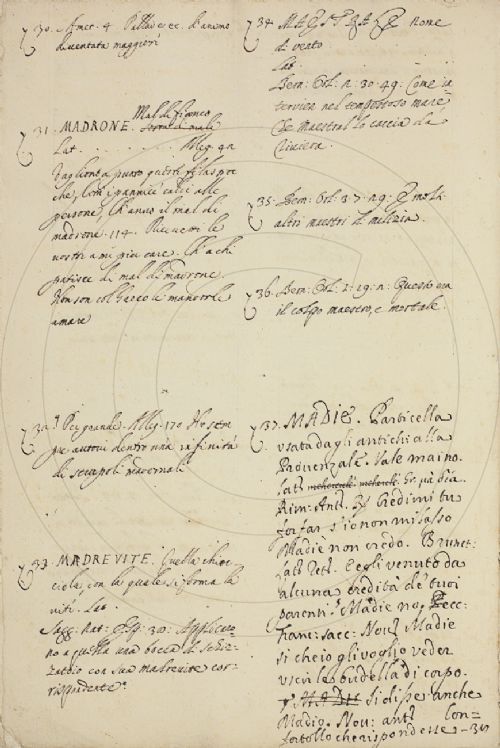 30. Amet. 4.
diventata maggiori
31. MADRONE. Mal di fianco
Lat. . . . . . . . . . . Alleg. 91
Vogliono a punto questi filaspoc
che, con i pannili caldi alle
persone, Ch'anno il mal di
madrone. 114. Riceveti le
nostre a mi più care. Ch'a chi
patisce di mal di madrone.
Non son col secco le mandorle
amare
32. Per grande. Alleg. 170 Ho sem
pre autori dentro una infinità
di serapoli madornali
33. MADREVITE. Quella chioc
ciola, con la quale si forma la
vite. Lat.
Sagg: Nat: Esp: 30: Applicato
no a quella una bocca di schiz-
zatoio con sua madrevite cor-
rispondente.
34. MAESTRALE Nome
di vento
Lat.
Bern: Orl: n: 30. 49: Come in
tervien nel tempestoso mare
Che maestral lo caccia da
riviera.
35. Bern: Orl: 37. 29: E molti
altri maestri di milizia.
36. Bern: Orl: 2: 19: n: Questo era
il colpo maestro, e mortale.
37. MADIE. Particella
usata dagli antichi alla
Provenzale. Vale maino.
Lat: mehercule Gr. μὰ Δία.
Rim: Ant: Credimi tu
for far s'io non mi lasso
Madiè non credo. Brunet:
Lat: E egli venuto da
alcuna eredità de tuoi
parenti? Madie no, Fecc:
Franc: Sacc: Nov: Madie
si cheio gli voglio veder
uscir le budella di corpo.
Si disse anche
Madio. Nov: ant: Lon-
fortollo che rispondesse - 39